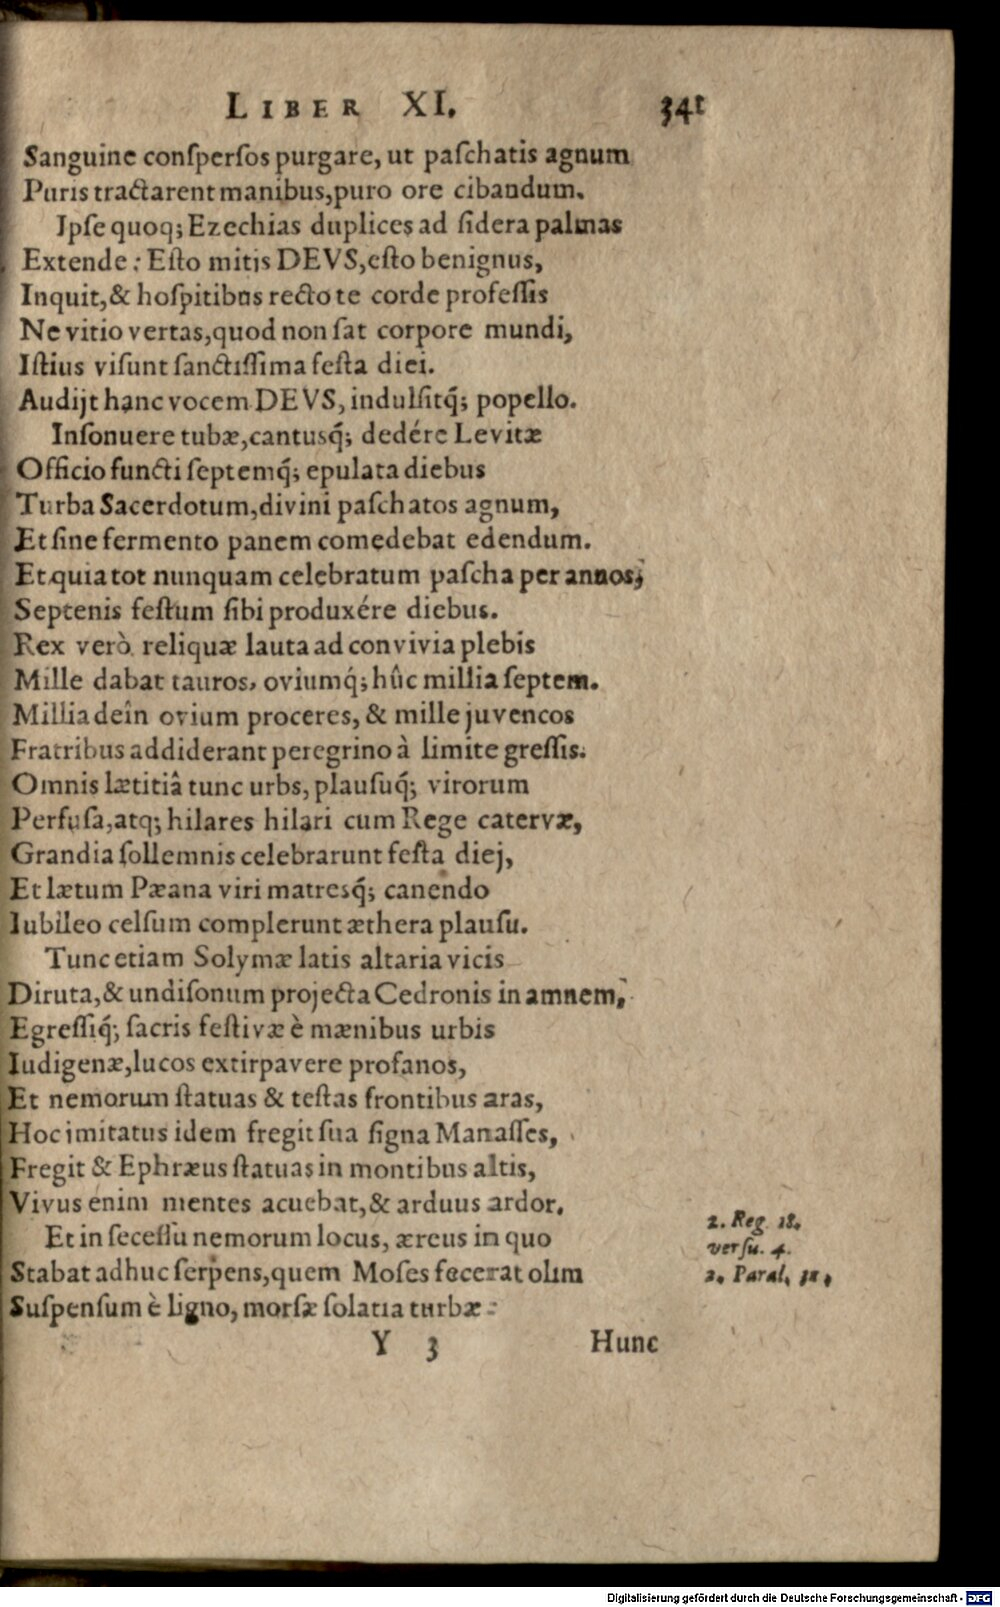 LIBER XI. 341
Sanguine conſperſos purgare, ut paſchatis agnum
Puris tractarent manibus, puro ore cibandum.
Ipſe quoq; Ezechias duplices ad ſidera palmas
Extende: Eſto mitis DEVS, eſto benignus,
Inquit, & hoſpitibus recto te corde profeſſis
Ne vitio vertas, quod non ſat corpore mundi,
Iſtius viſunt ſanctiſſima feſta diei.
Audijt hanc vocem DEVS, indulſitq́; popello.
Inſonuere tubæ, cantusq́; dedére Levitæ
Officio functi ſeptemq́; epulata diebus
Turba Sacerdotum, divini paſchatos agnum,
Et ſine fermento panem comedebat edendum.
Et quia tot nunquam celebratum paſcha per annos,
Septenis feſtum ſibi produxére diebus.
Rex verò reliquæ lauta ad convivia plebis
Mille dabat tauros, oviumq́; hûc millia ſeptem.
Millia deîn ovium proceres, & mille juvencos
Fratribus addiderant peregrino à limite greſſis.
Omnis lætitiâ tunc urbs, plauſuq́; virorum
Perfuſa, atq; hilares hilari cum Rege catervæ,
Grandia ſollemnis celebrarunt feſta diej,
Et lætum Pæana viri matresq́; canendo
Iubileo celſum complerunt æthera plauſu.
Tunc etiam Solymæ latis altaria vicis
Diruta, & undiſonum projecta Cedronis in amnem,
Egreſſiq́; ſacris feſtivæ è mænibus urbis
Iudigenæ, lucos extirpavere profanos,
Et nemorum ſtatuas & teſtas frontibus aras,
Hoc imitatus idem fregit ſua ſigna Manaſſes,
Fregit & Ephræus ſtatuas in montibus altis,
Vivus enim mentes acuebat, & arduus ardor.
Et in ſeceſſu nemorum locus, æreus in quo
Stabat adhuc ſerpens, quem Moſes fecerat olim
Suſpenſum è ligno, morſæ ſolatia turbæ:
2. Reg. 18.
verſu. 4.
2. Paral. 31.
Y 3 Hunc
Digitalisierung gefördert durch die Deutsche Forschungsgemeinschaft - DFG